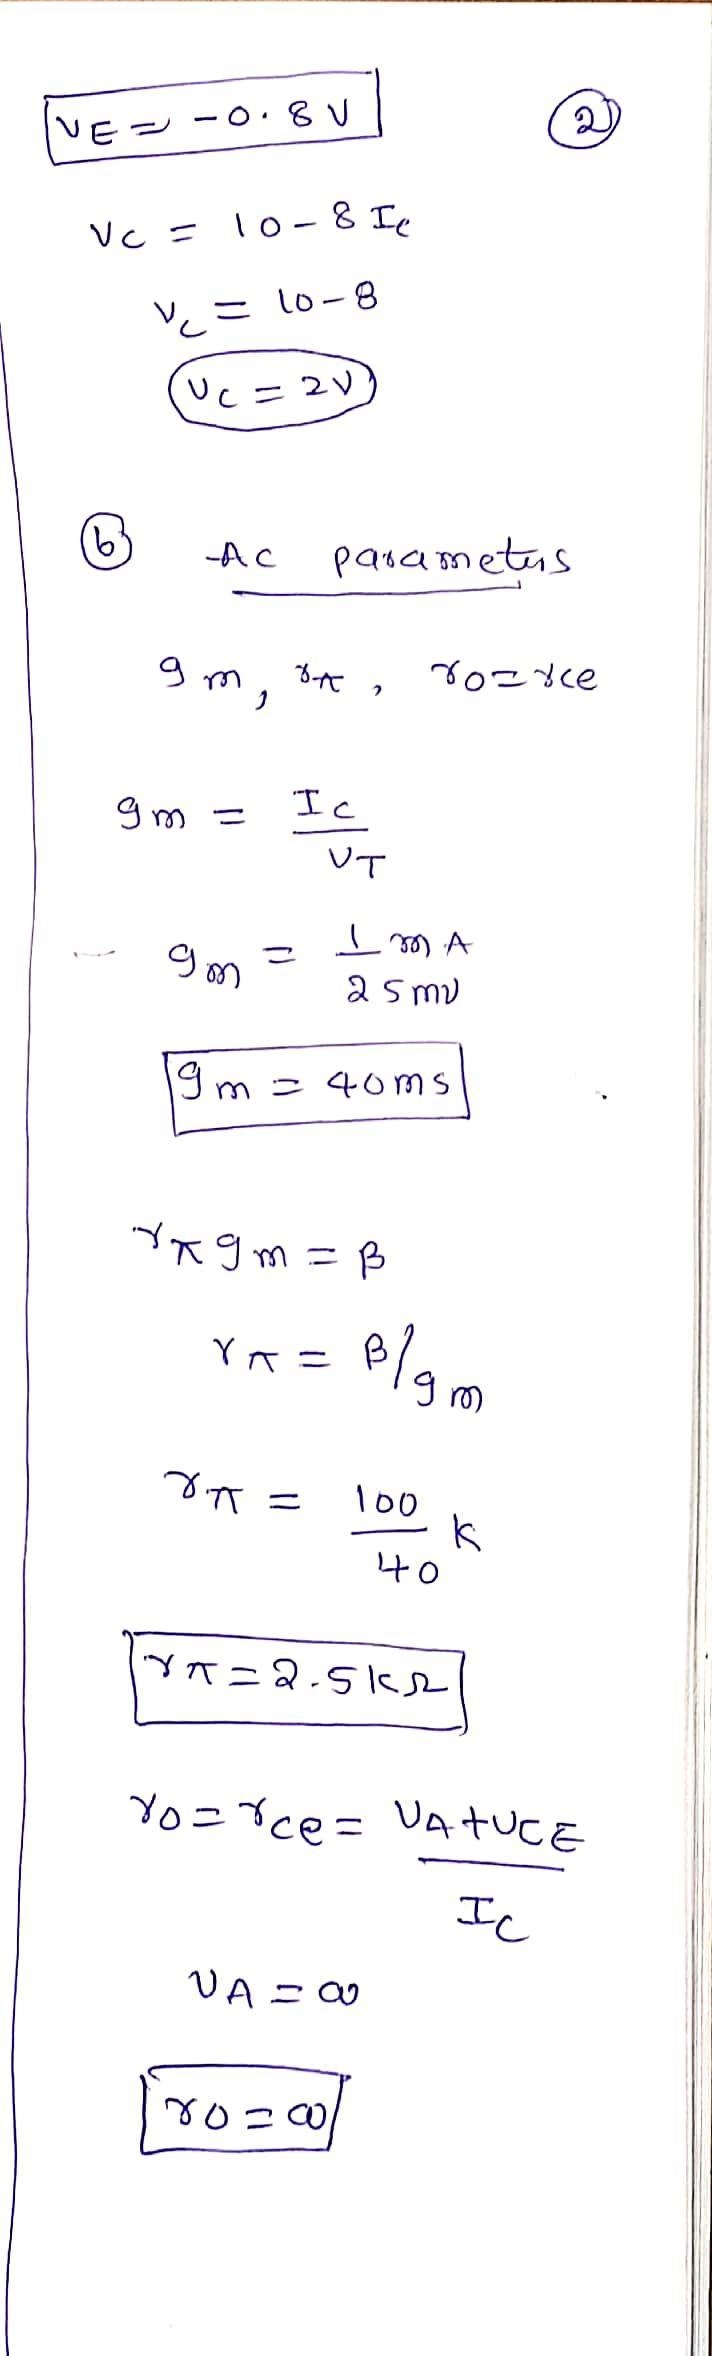 VE = -0.8V
2
VC = 10-8 Ic
Vc = 10-8
VC = 2V
b AC parameters
gm, rπ, ro=rce
gm = Ic
VT
gm = 1 mA
25mV
gm = 40ms
rπgm = β
rπ = β/gm
rπ = 100
K
40
rπ = 2.5kΩ
ro = rce = VA+VCE
IC
VA = ∞
ro = ∞